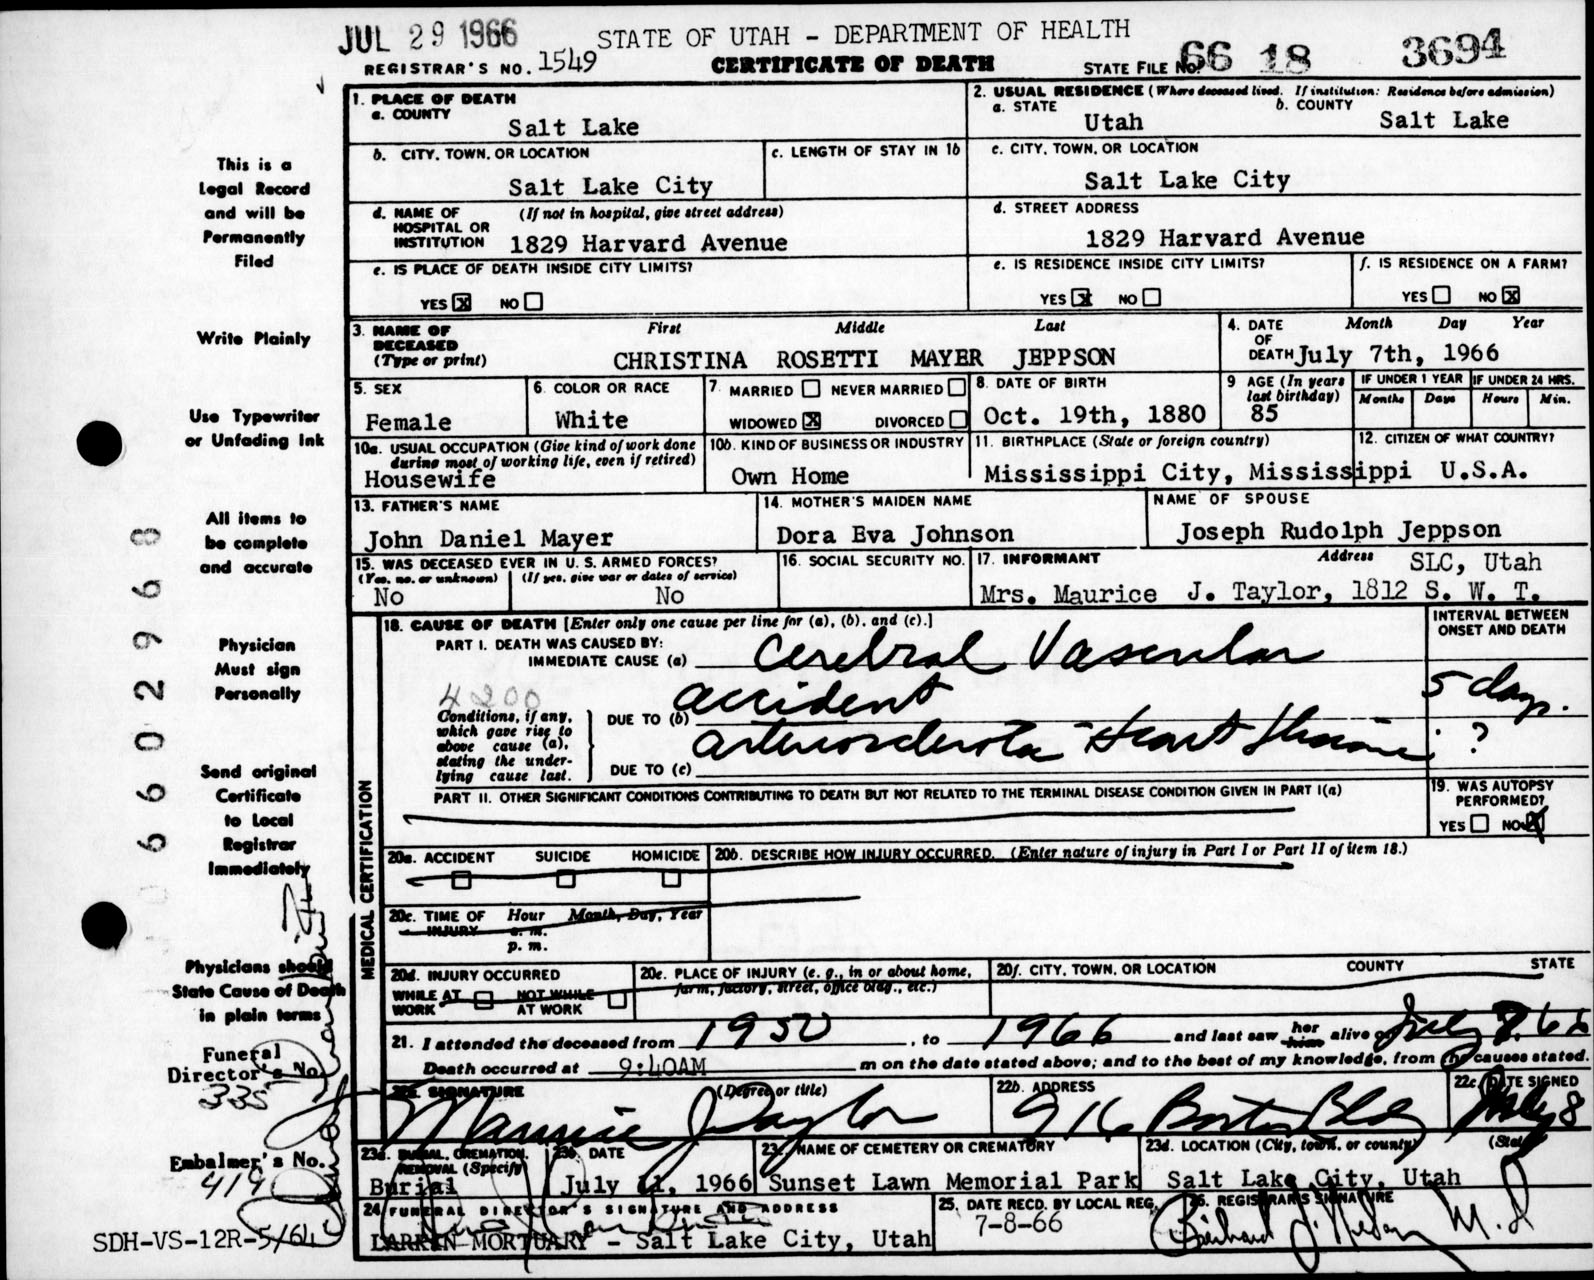 JUL 29 1966
STATE OF UTAH – DEPARTMENT OF HEALTH
REGISTRAR'S NO. 1549
CERTIFICATE OF DEATH
STATE FILE NO. 66 18 3694
1. PLACE OF DEATH
a. COUNTY
Salt Lake
2. USUAL RESIDENCE (Where deceased lived. If institution: Residence before admission)
a. STATE
Utah
b. COUNTY
Salt Lake
b. CITY, TOWN, OR LOCATION
Salt Lake City
c. LENGTH OF STAY IN 1b
c. CITY, TOWN, OR LOCATION
Salt Lake City
d. NAME OF HOSPITAL OR INSTITUTION
(If not in hospital, give street address)
1829 Harvard Avenue
d. STREET ADDRESS
1829 Harvard Avenue
e. IS PLACE OF DEATH INSIDE CITY LIMITS?
YES X NO
e. IS RESIDENCE INSIDE CITY LIMITS?
YES X NO
f. IS RESIDENCE ON A FARM?
YES NO X
3. NAME OF DECEASED (Type or print)
First Middle Last
CHRISTINA ROSETTI MAYER JEPPSON
4. DATE OF DEATH
Month Day Year
July 7th, 1966
5. SEX
Female
6. COLOR OR RACE
White
7. MARRIED NEVER MARRIED
WIDOWED X DIVORCED
8. DATE OF BIRTH
Oct. 19th, 1880
9 AGE (In years last birthday)
85
IF UNDER 1 YEAR
Months Days
IF UNDER 24 HRS.
Hours Min.
10a. USUAL OCCUPATION (Give kind of work done during most of working life, even if retired)
Housewife
10b. KIND OF BUSINESS OR INDUSTRY
Own Home
11. BIRTHPLACE (State or foreign country)
Mississippi City, Mississippi
12. CITIZEN OF WHAT COUNTRY?
U.S.A.
13. FATHER'S NAME
John Daniel Mayer
14. MOTHER'S MAIDEN NAME
Dora Eva Johnson
NAME OF SPOUSE
Joseph Rudolph Jeppson
15. WAS DECEASED EVER IN U. S. ARMED FORCES?
(Yes, no, or unknown) (If yes, give war or dates of service)
No No
16. SOCIAL SECURITY NO.
17. INFORMANT Address
SLC, Utah
Mrs. Maurice J. Taylor, 1812 S. W. T.
MEDICAL CERTIFICATION
18. CAUSE OF DEATH [Enter only one cause per line for (a), (b), and (c).]
INTERVAL BETWEEN ONSET AND DEATH
PART I. DEATH WAS CAUSED BY:
IMMEDIATE CAUSE (a) Cerebral Vascular
4200
accident
5 days.
Conditions, if any, which gave rise to above cause (a), stating the underlying cause last.
DUE TO (b)
arteriosclerotic Heart Disease ?
DUE TO (c)
PART II. OTHER SIGNIFICANT CONDITIONS CONTRIBUTING TO DEATH BUT NOT RELATED TO THE TERMINAL DISEASE CONDITION GIVEN IN PART I(a)
19. WAS AUTOPSY PERFORMED?
YES NO X
20a. ACCIDENT SUICIDE HOMICIDE
20b. DESCRIBE HOW INJURY OCCURRED. (Enter nature of injury in Part I or Part II of item 18.)
20c. TIME OF INJURY
Hour Month, Day, Year
a. m.
p. m.
20d. INJURY OCCURRED
WHILE AT WORK NOT WHILE AT WORK
20e. PLACE OF INJURY (e. g., in or about home, farm, factory, street, office bldg., etc.)
20f. CITY, TOWN, OR LOCATION COUNTY STATE
21. I attended the deceased from 1950, to 1966 and last saw her him alive on July 7, 66
Death occurred at 9:40AM m on the date stated above; and to the best of my knowledge, from the causes stated.
22a. SIGNATURE (Degree or title)
Maurice J Taylor
22b. ADDRESS
916 Boston Bldg
22c. DATE SIGNED
July 8
23a. BURIAL, CREMATION, REMOVAL (Specify)
Burial
23b. DATE
July 11, 1966
23c. NAME OF CEMETERY OR CREMATORY
Sunset Lawn Memorial Park
23d. LOCATION (City, town, or county) (State)
Salt Lake City, Utah
24. FUNERAL DIRECTOR'S SIGNATURE AND ADDRESS
LARKIN MORTUARY – Salt Lake City, Utah
25. DATE RECD. BY LOCAL REG.
7-8-66
26. REGISTRAR'S SIGNATURE
M. D
This is a
Legal Record
and will be
Permanently
Filed
Write Plainly
Use Typewriter
or Unfading Ink
All items to
be complete
and accurate
Physician
Must sign
Personally
Send original
Certificate
to Local
Registrar
Immediately
Physicians should
State Cause of Death
in plain terms
Funeral
Director's No.
335
Embalmer's No.
419
SDH-VS-12R-5/64
6602968